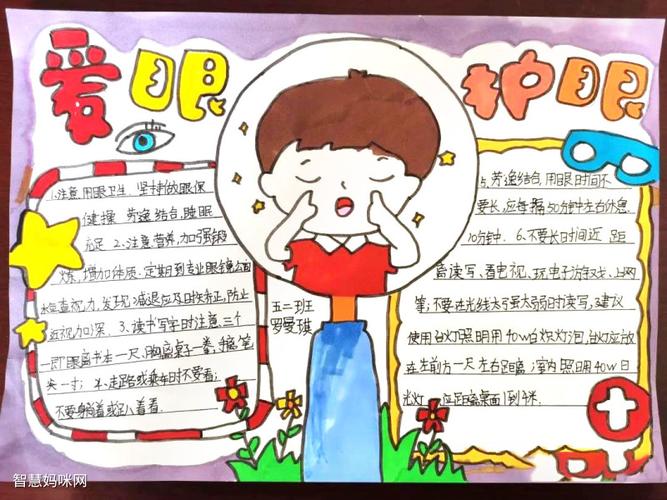 爱眼
护眼
1.注意用眼卫生.坚持做眼保
健操 劳逸结合,睡眠
充足 2、注意营养,加强锻
炼,增加体质.定期到专业眼镜公司
检查视力,发现减退应及时矫正,防止
近视加深. 3.读书写字时注意三个
一即眼离书本一尺,胸离桌子一拳,手离笔
尖一寸; 4、走路或乘车时不要看;
不要躺着或趴着看.
五二班
罗曼琪
5、劳逸结合,用眼时间不
要长,应每隔50分钟左右休息
10分钟. 6、不要长时间近 距
离读写、看电视、玩电子游戏、上网
等;不要在光线太强太弱时读写,建议
使用台灯照明用40w白炽灯泡,台灯应放
在左前方一尺左右距离;室内照明40W日
光灯 应距离桌面1到
智慧妈咪网